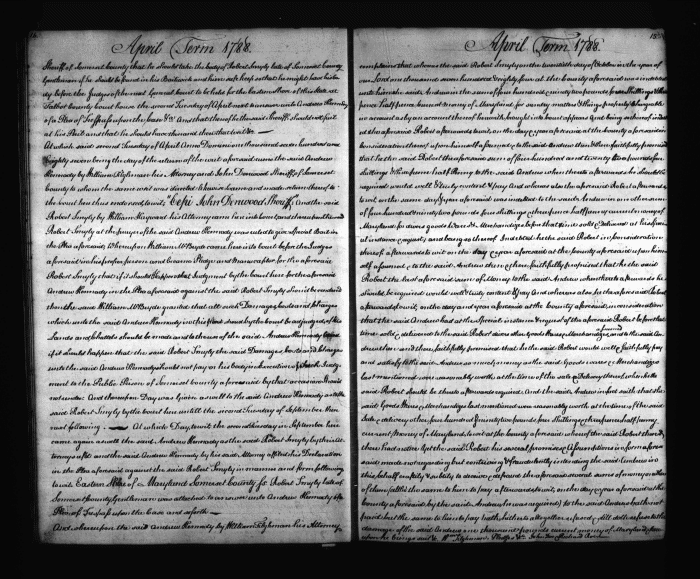 April Term 1788.
Sheriff of Somerset County that he should take the body of Robert Smyly late of Somerset County
Gentleman if he should be found in his Bailiwick and him safe keep so that he might have his body
before the Judges of the next General Court to be held for the Eastern Shore of this State at
Talbot County Court house the second Tuesday of April next to answer unto Andrew Kennedy
of a Plea of Trespass upon the Case &c And that then of the said Sheriff should not fail
at his Peril and that he should have then and there that writ
At which said second Tuesday of April Anno Domini one thousand seven hundred and
Eighty seven being the day of the return of the writ aforesaid came the said Andrew
Kennedy by William his Attorney and John Denwood Sheriff of Somerset
County to whom the same writ was directed to have it here and made return thereof to
the Court here thus endorsed to wit "Cepi John Denwood Sheriff" And the said
Robert Smyly by William Hayward his Attorney came here into Court and thereon the said
Robert Smyly at the prayer of the said Andrew Kennedy was ruled to give special Bail in
the Plea aforesaid Whereupon William McBryde came here into Court before the Judges
aforesaid in his proper person and became Pledge and for the aforesaid
Robert Smyly that if it should happen that Judgment by the Court here for the aforesaid
Andrew Kennedy in the Plea aforesaid against the said Robert Smyly should be rendered
then the said William McBryde granted that all such Damages Costs and Charges
which unto the said Andrew Kennedy in that should by the Court be adjudged of his
Lands and Chattels should be made and to the use of the said Andrew Kennedy
if it should happen that the said Robert Smyly the said Damages Costs and Charges
unto the said Andrew Kennedy should not pay or his body in Execution of such Judg-
ment to the Public Prison of Somerset County aforesaid by that occasion should
not render And thereupon Day was given as well to the said Andrew Kennedy as to the
said Robert Smyly by the Court here untill the second Tuesday of September then
next following. At which Day, to wit the second Tuesday in September here
came again as well the said Andrew Kennedy as the said Robert Smyly by their At-
torneys afsd and the said Andrew Kennedy by his said Attorney filed his Declaration
in the Plea aforesaid against the said Robert Smyly in manner and form following
to wit Eastern Shore of Maryland Somerset County Robert Smyly late of
Somerset County gentleman was attached to answer unto Andrew Kennedy of a
Plea of Trespass upon the Case and so forth
And whereupon the said Andrew Kennedy by William his Attorney
April Term 1788.
complains that whereas the said Robert Smyly on the twentieth day of October in the year of
our Lord one thousand seven hundred and eighty four at the County aforesaid was indebted
unto him the said Andrew in the sum of four hundred and twenty two pounds four Shillings & three
pence half penny current money of Maryland for sundry matters & things properly chargeable
in account as by an account thereof herewith brought into Court appears And being so thereof indebt-
ed the aforesaid Robert afterwards to wit, on the day & year aforesaid at the County aforesaid in
consideration thereof upon himself assumed & to the said Andrew then & there faithfully promised
that he the said Robert the aforesaid sum of four hundred and twenty two pounds four
shillings & three pence half Penny to the said Andrew when thereto afterwards he should be
required would well & truly content & pay And whereas also the aforesaid Robert afterwards
to wit on the same day & year aforesaid was indebted to the said Andrew in one other sum
of four hundred and ninety two pounds four shillings & three pence half penny current money of
Maryland for divers goods Wares & Merchandizes before that time sold & delivered at his special
instance & request and being so thereof Indebted he the said Robert in consideration
thereof afterwards to wit on the day & year aforesaid at the County aforesaid upon him
self assumed & to the said Andrew then & there faithfully promised that he the said
Robert the last aforesaid sum of Money to the said Andrew when thereto afterwards he
should be required would well & truly content & pay And whereas also for the aforesaid Robert
afterwards to wit, on the day and year aforesaid at the County aforesaid, in consideration
that the said Andrew had at the special instance & request of the aforesaid Robert before that
time sold & delivered to the said Robert divers other goods Wares & Merchandizes assumed and to the said An-
drew then and there faithfully promised that he the said Robert would well & faithfully pay
and satisfy to the said Andrew as much money as the said Goods wares & Merchandizes
last mentioned were reasonably worth at the time of the sale & Delivery thereof when he the
said Robert should be thereto afterwards required. And the said Andrew in fact saith that the
said Goods Wares & Merchandizes last mentioned were reasonably worth at the time of the said
Sale & delivery other four hundred & twenty two pounds four shillings & three pence half penny
current Money of Maryland, to wit at the County aforesaid whereof the said Robert there & then
then had notice Yet the said Robert his several promises & assumptions in form afore
said made not regarding but contriving & fraudulently intending the said Andrew in
this behalf craftily & subtilly to deceive & defraud the aforesaid several sums of money or either
of them (altho the same to him to pay afterwards to wit, on the day & year aforesaid at the
County aforesaid by the said Andrew he was required) to the said Andrew hath not
paid but the same to him to pay hath hitherto altogether refused & still doth refuse to the
damage of the said Andrew one thousand pounds current money of Maryland & there-
upon he brings suit &c. Pledges &c John Doe & Richard Roe